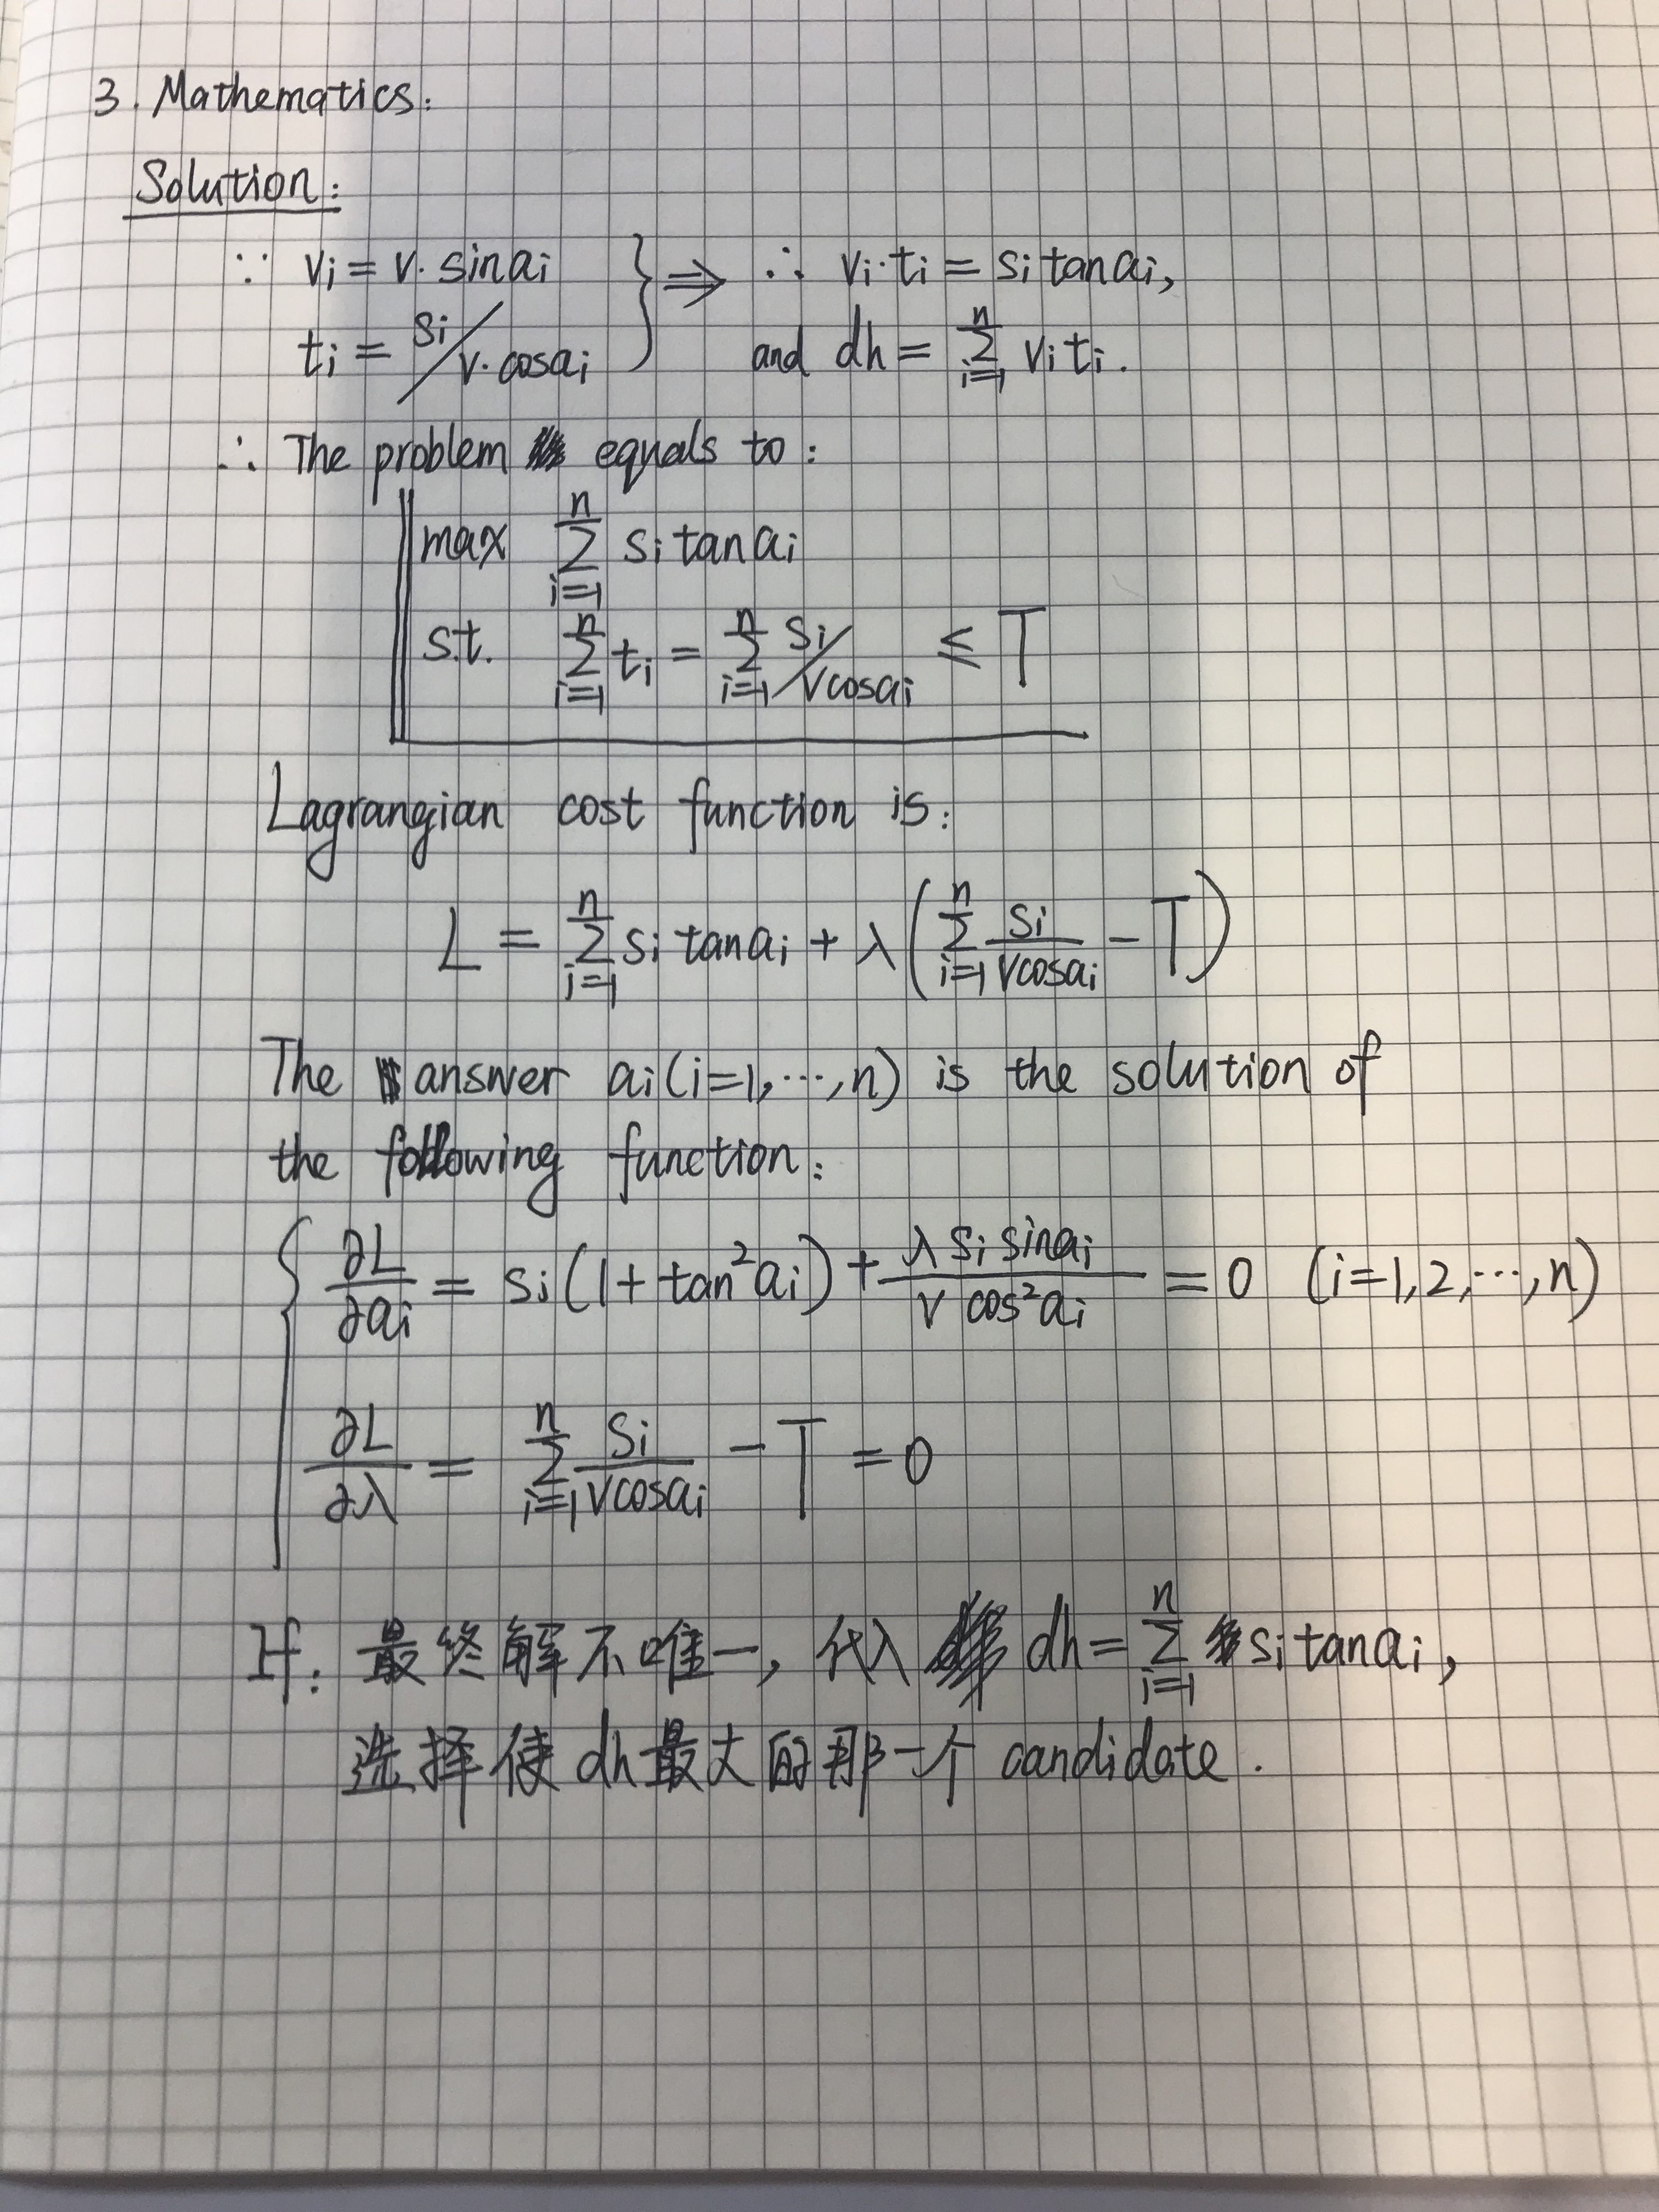 3. Mathematics:
Solution:
∵ vi = v· sinai } ⇒ ∴ vi·ti = si tanai,
ti = si/v·cosai and dh = ∑_{i=1}^{n} vi ti.
∴ The problem equals to:
max ∑_{i=1}^{n} si tanai
s.t. ∑_{i=1}^{n} ti = ∑_{i=1}^{n} si/vcosai ≤ T
Lagrangian cost function is:
L = ∑_{i=1}^{n} si tanai + λ(∑_{i=1}^{n} si/vcosai − T)
The answer ai(i=1,···,n) is the solution of
the following function:
{ ∂L/∂ai = si(1+tan²ai) + λ si sinai/v cos²ai = 0 (i=1,2,···,n)
∂L/∂λ = ∑_{i=1}^{n} si/vcosai − T = 0
If: 最终解不唯一, 代入 dh = ∑_{i=1}^{n} si tanai,
选择使 dh 最大的那一个 candidate.